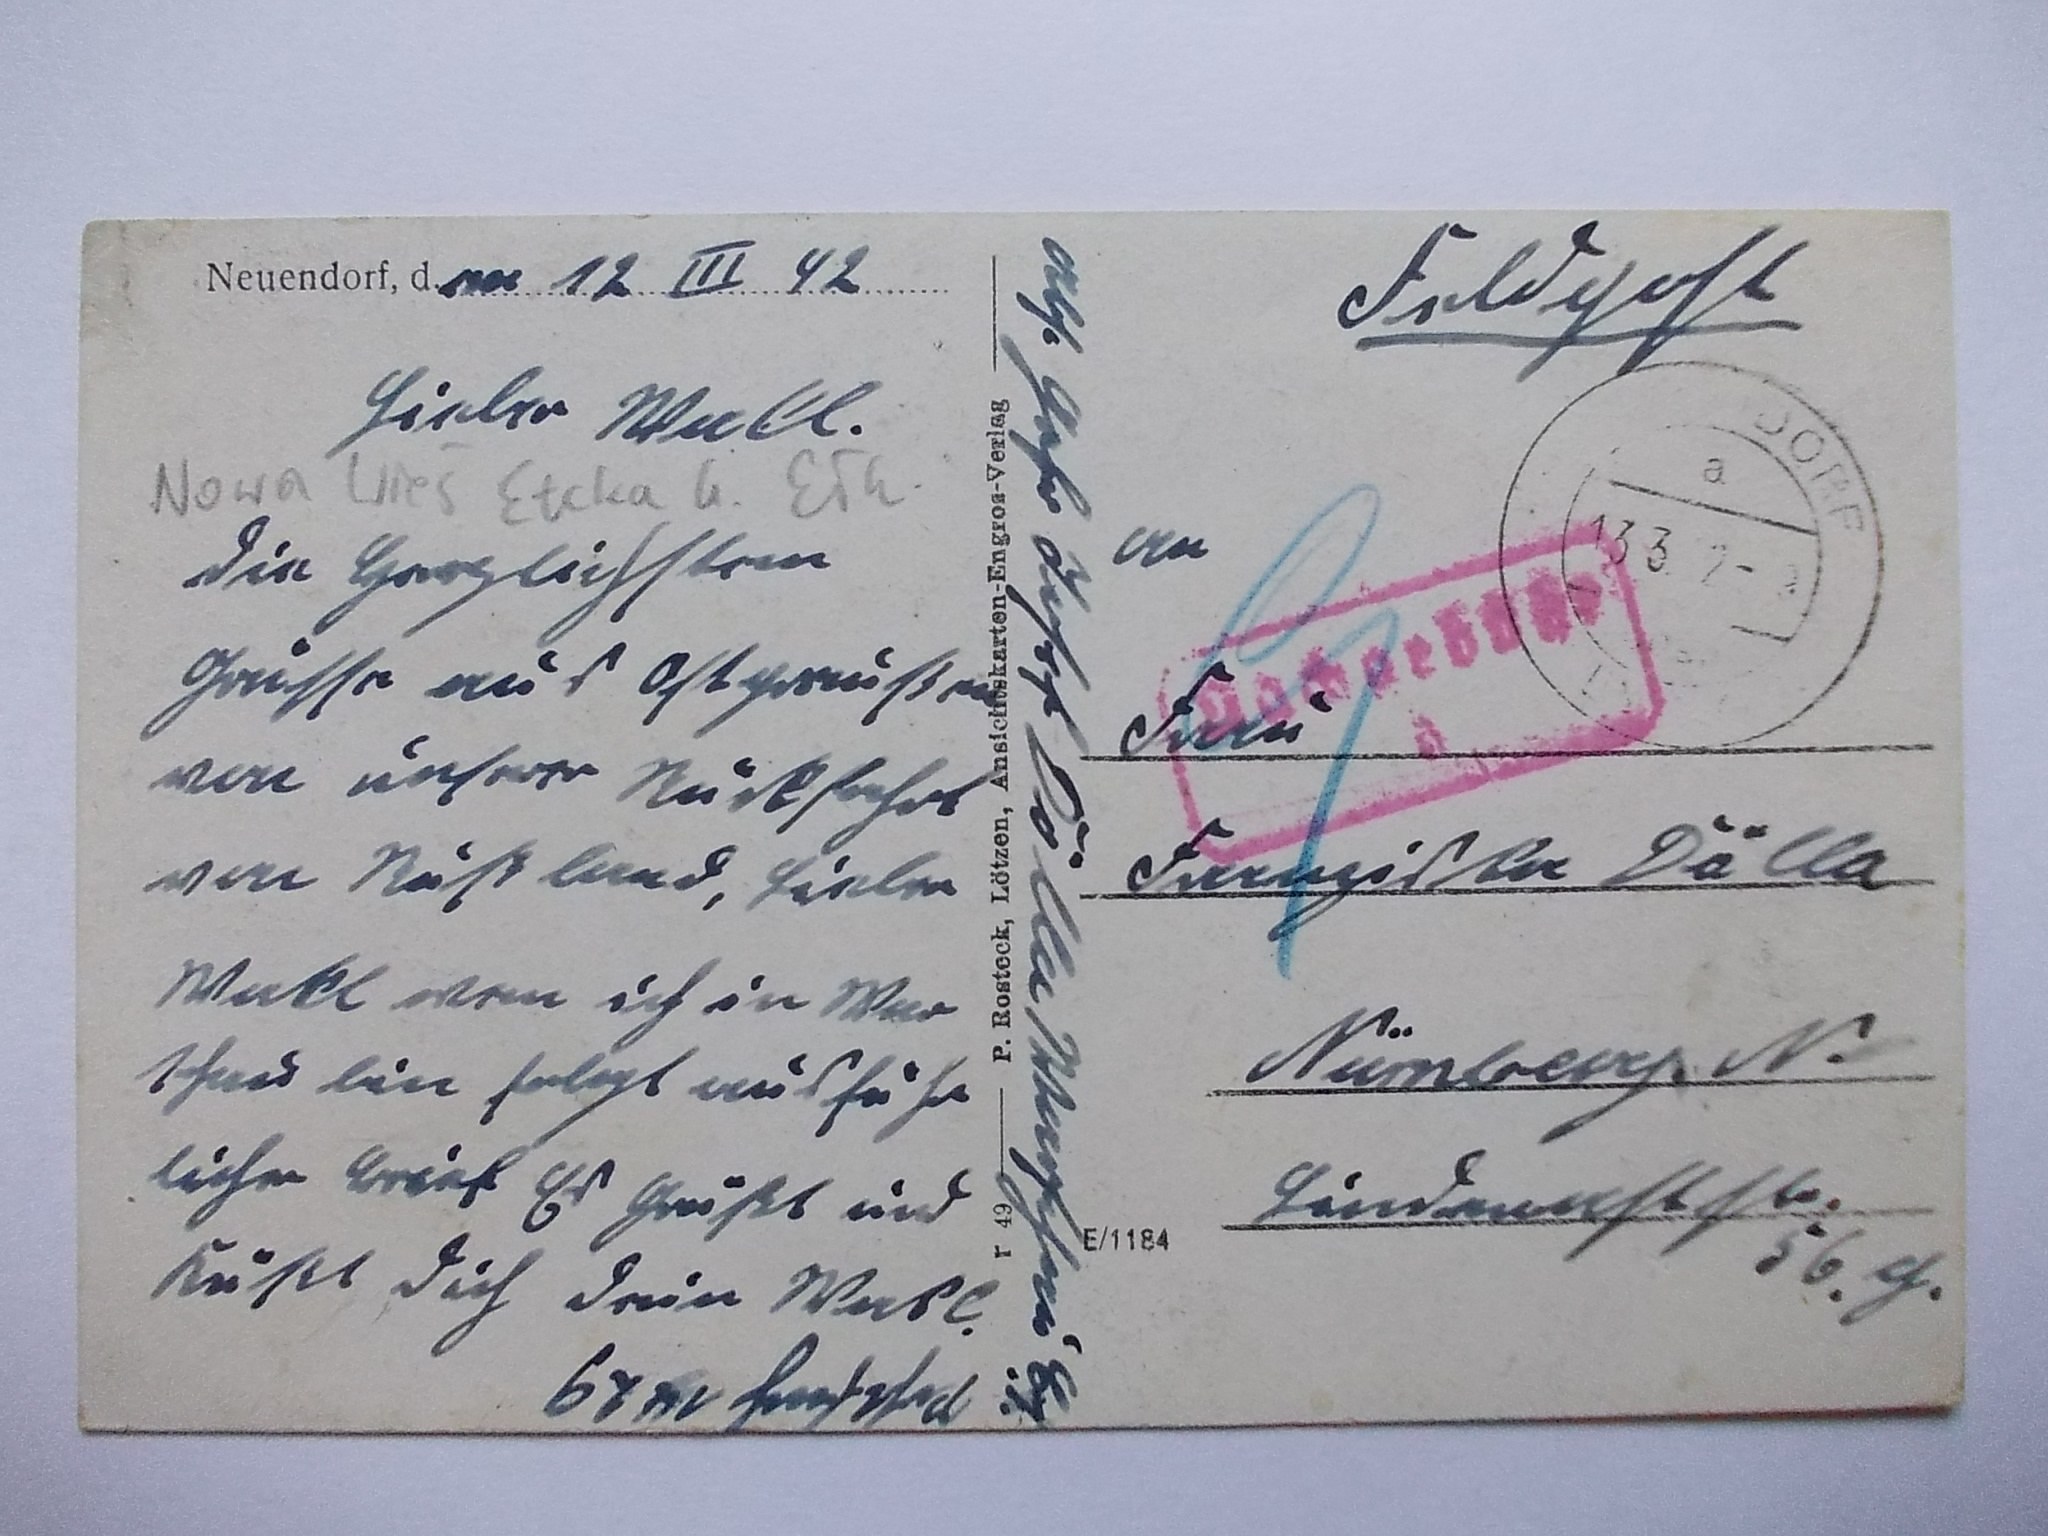 Neuendorf, den 12 III 42
Lieber Wakl.
Nowa Wieś Ełcka k. Ełk.
Die Herzlichsten
Grüsse aus Ostpreußen
von unserer Rückfahrt
von Rußland, Lieber
Wakl wen ich in War
schau bin folgt ausführ
licher Brief Es Grüßt und
Küßt Dich dein Wakl.
P. Rosteck, Lötzen, Ansichtskarten-Engros-Verlag
r 49
E/1184
Feldpost
DORF
a
13.3.
an
Nachgebühr
Frau
Franziska Dölla
Nürnberg. N.
Lindenaststr.
56. G.